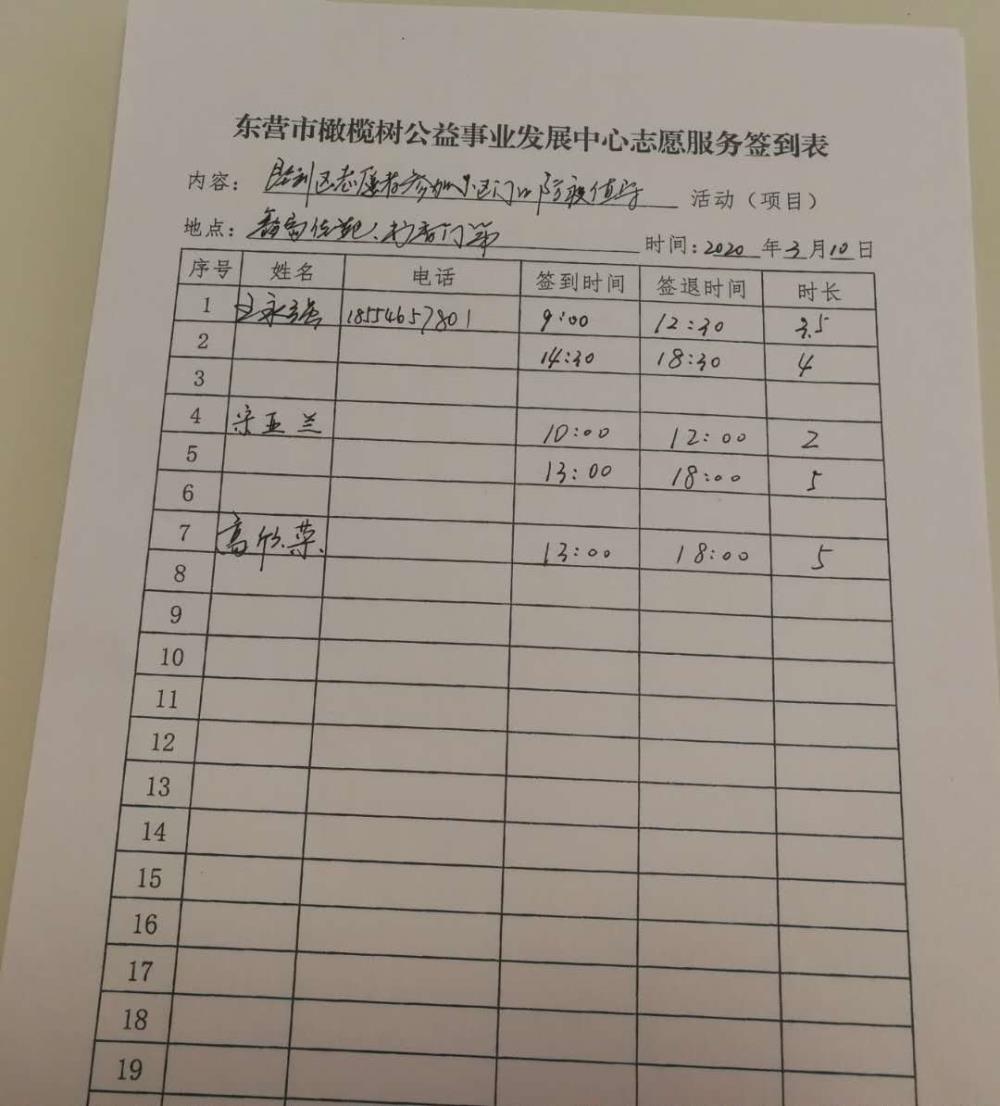 东营市橄榄树公益事业发展中心志愿服务签到表
内容：胜利区志愿者参加小区门口防疫值守 活动（项目）
地点： 时间：2020 年 3 月 10 日
序号 姓名 电话 签到时间 签退时间 时长
1 王永强 18554657801 9:00 12:30 3.5
2 14:30 18:30 4
3
4 宋亚兰 10:00 12:00 2
5 13:00 18:00 5
6
7 高欣荣 13:00 18:00 5
8
9
10
11
12
13
14
15
16
17
18
19